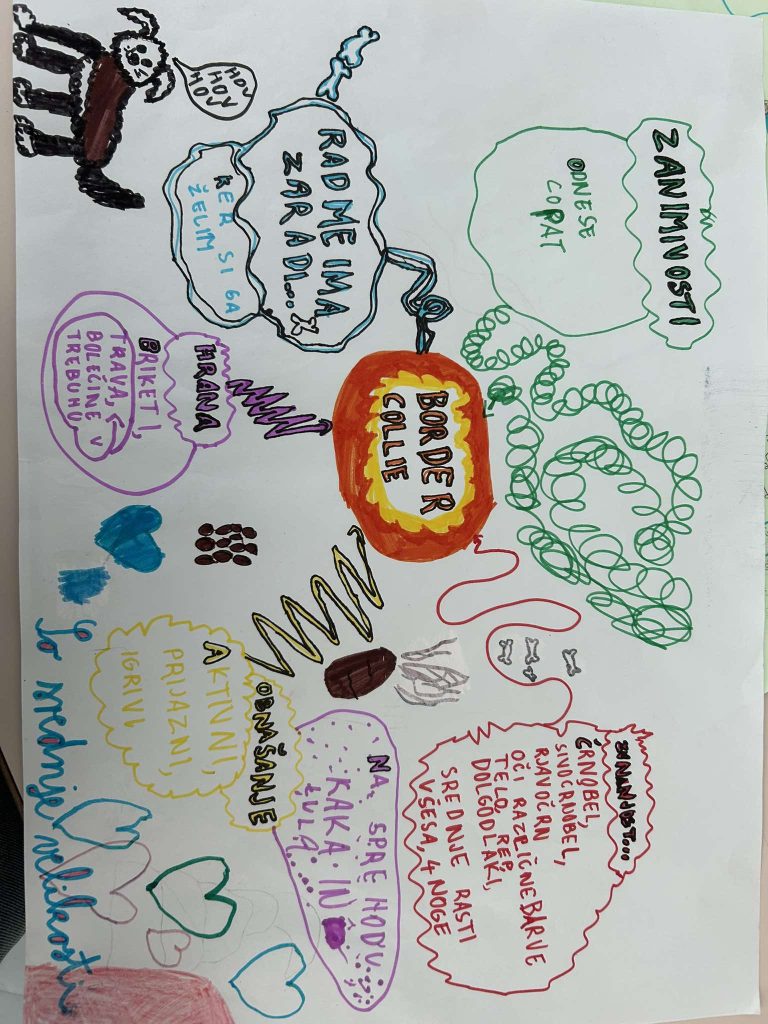 ZANIMIVOSTI
ODNESE
COPAT
ZUNANJOST...
ČRNOBEL,
SIVOČRNOBEL,
RJAVOČRN
OČI RAZLIČNE BARVE
TELO, REP,
DOLGODLAKI,
SREDNJE RASTI
UŠESA, 4 NOGE
BORDER
COLLIE
RAD ME IMA
ZARADI...
KER SI GA
ŽELIM
HOV
HOV
HOV
HRANA
BRIKETI,
TRAVA,
BOLEČINE V
TREBUHU
OBNAŠANJE
AKTIVNI,
PRIJAZNI,
IGRIVI,
KAKA IN
So srednje velikosti